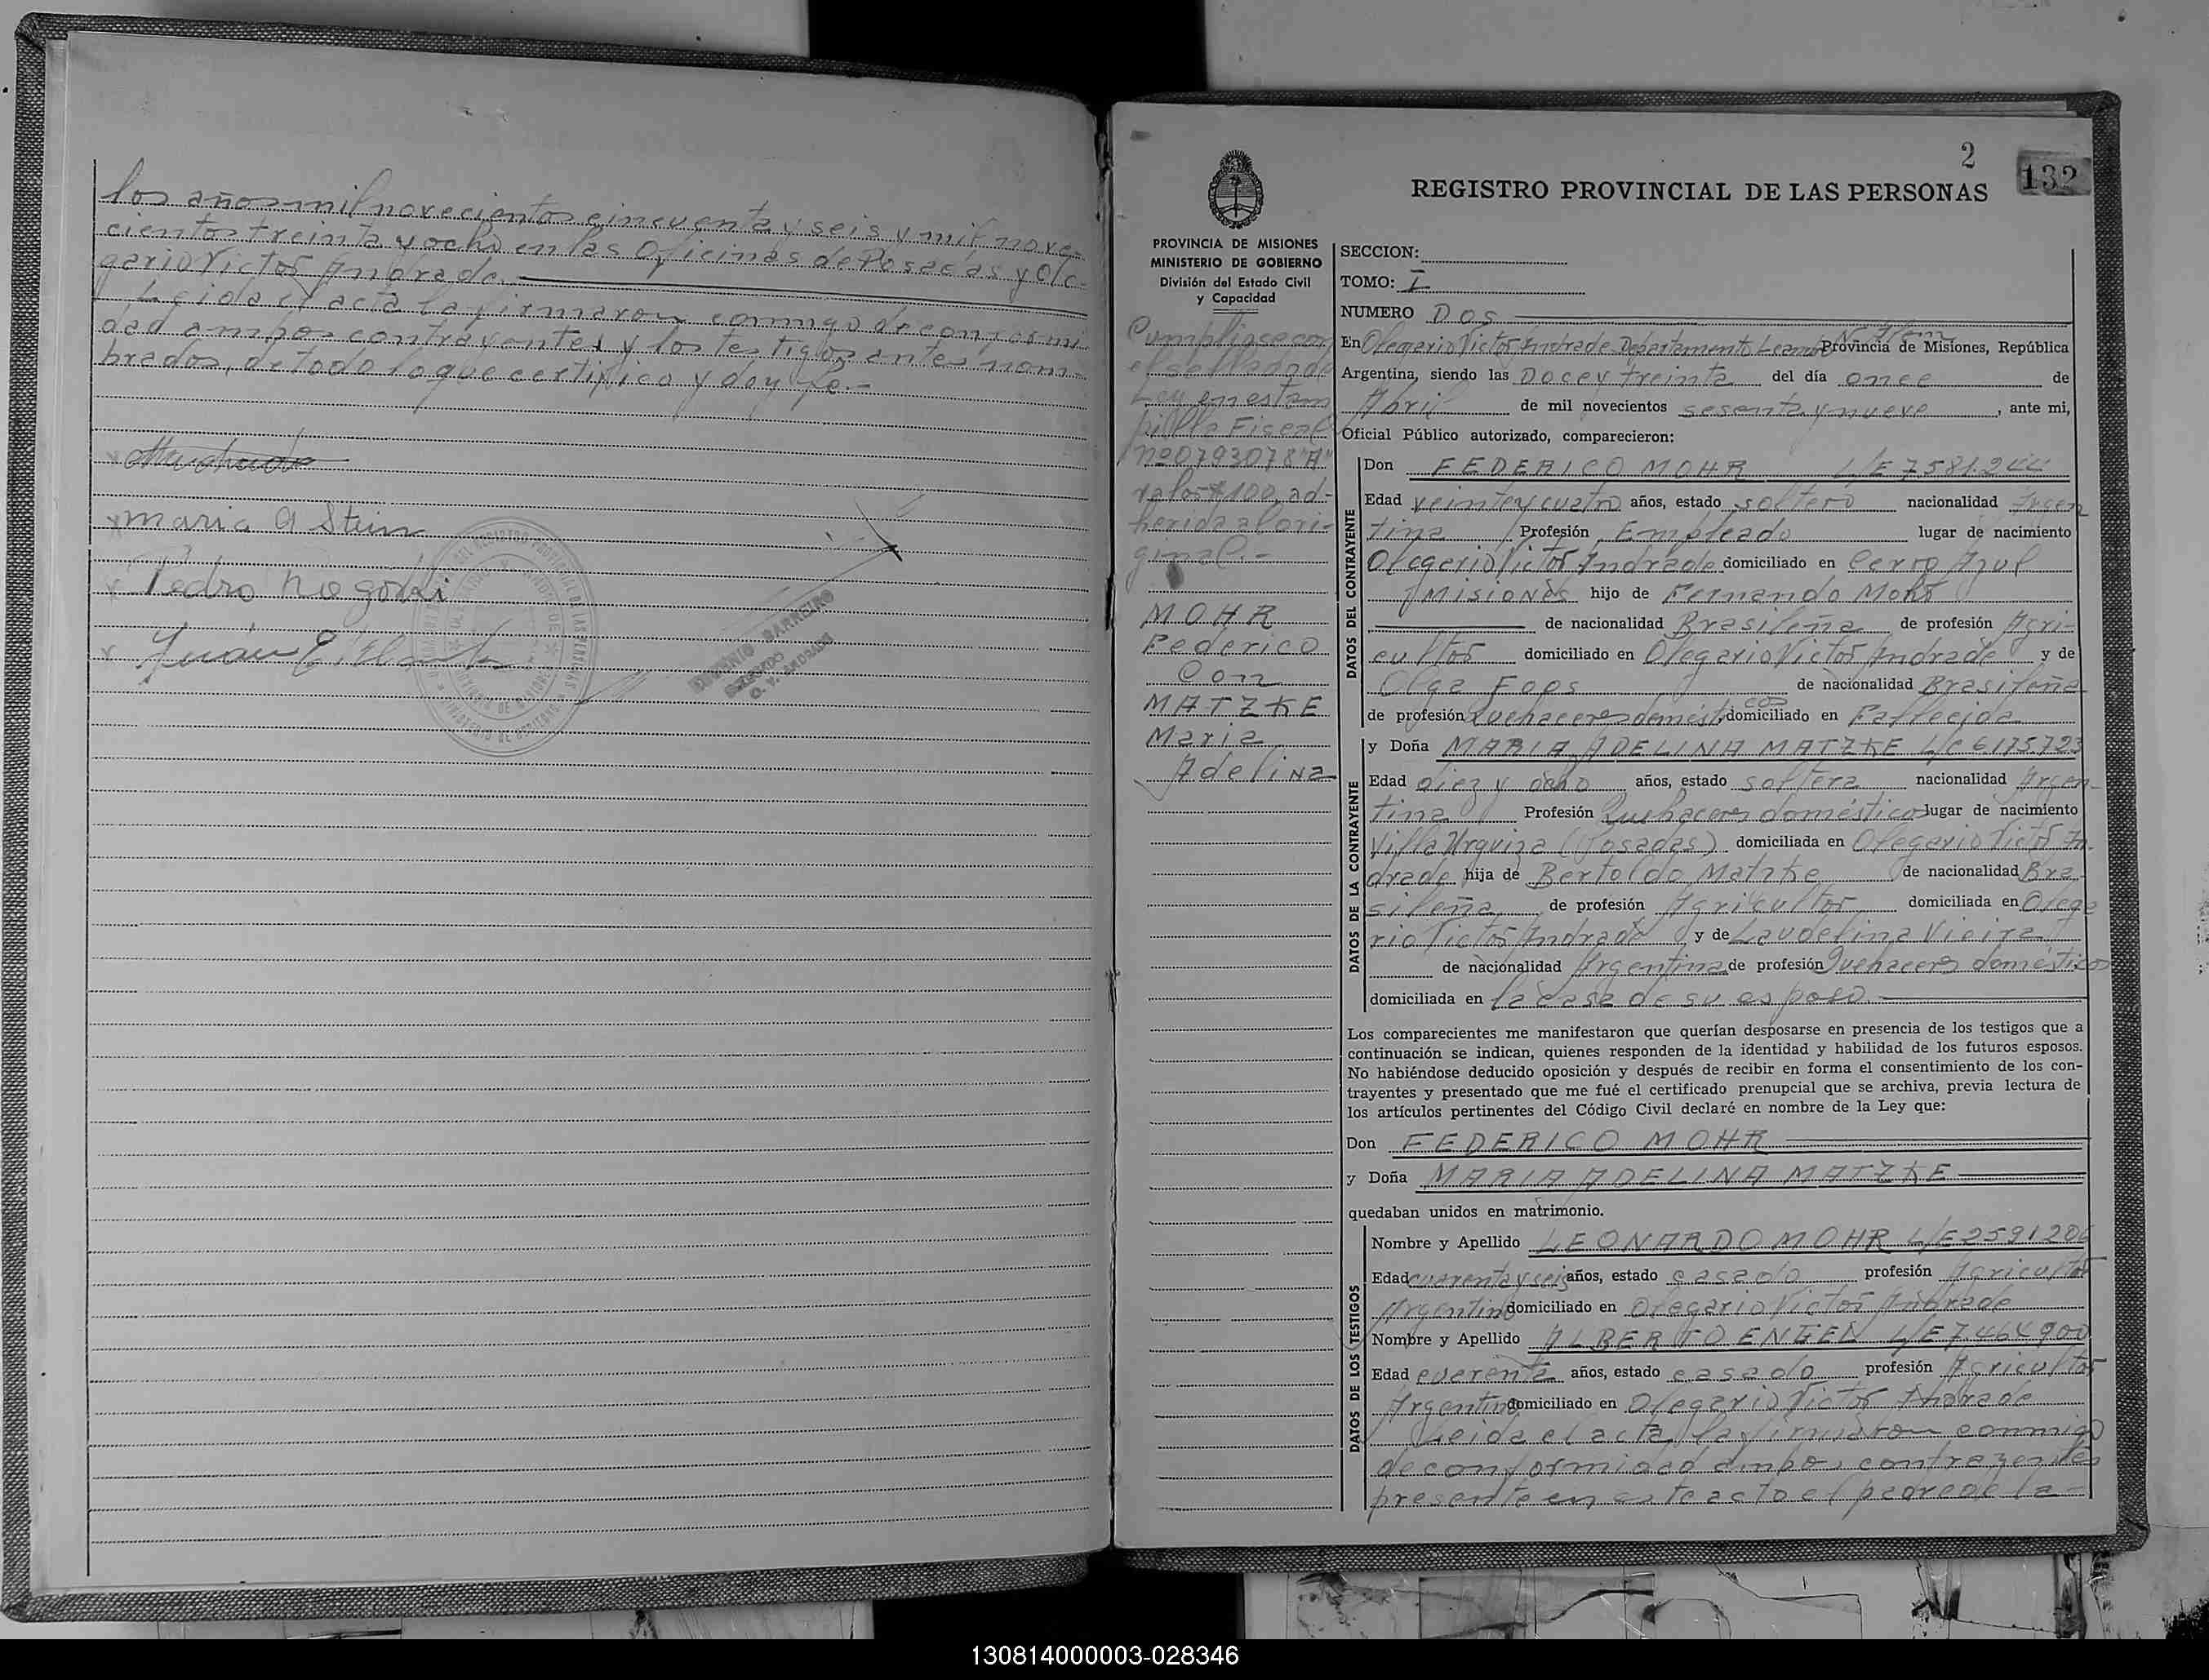 los años mil novecientos cincuenta y seis y mil nove-
cientos treinta y ocho en las Oficinas de Posadas y Ole-
gario Victor Andrade.
Leida el acta la firmaron conmigo de conformi
dad ambos contrayentes y los testigos antes nom-
brados, de todo lo que certifico y doy fe.-
Maria A Stein
Pedro
Juan E.
2
132
REGISTRO PROVINCIAL DE LAS PERSONAS
PROVINCIA DE MISIONES
MINISTERIO DE GOBIERNO
División del Estado Civil
y Capacidad
Cumplióse con
el sellado de
Ley en estam
pilla Fiscal
nº0793078"A"
valor $100, ad-
herida al ori-
ginal.-
MOHR
Federico
Con
MATZKE
Maria
Adelina
SECCION:
TOMO: I
NUMERO DOS
En Olegario Victor Andrade Departamento Leandro N. Alem Provincia de Misiones, República
Argentina, siendo las Doce y treinta del día once de
Abril de mil novecientos sesenta y nueve, ante mi,
Oficial Público autorizado, comparecieron:
DATOS DEL CONTRAYENTE
Don FEDERICO MOHR L/E 7.581.244
Edad veinte y cuatro años, estado soltero nacionalidad Argen
tina Profesión Empleado lugar de nacimiento
Olegario Victor Andrade domiciliado en Cerro Azul
Misiones hijo de Fernando Mohr
de nacionalidad Brasileña de profesión Agri-
cultor domiciliado en Olegario Victor Andrade y de
Olga Fops de nacionalidad Brasileña
de profesión Quehaceres domésticos domiciliado en Fallecida
DATOS DE LA CONTRAYENTE
y Doña MARIA ADELINA MATZKE L/C 6.175.723
Edad diez y ocho años, estado soltera nacionalidad Argen-
tina Profesión Quehaceres domésticos lugar de nacimiento
Villa Urquiza (Posadas) domiciliada en Olegario Victor An-
drade hija de Bertoldo Matzke de nacionalidad Bra-
sileña de profesión Agricultor domiciliada en Olega
rio Victor Andrade y de Laudelina Vieira
de nacionalidad Argentina de profesión Quehaceres domésticos
domiciliada en la casa de su esposo
Los comparecientes me manifestaron que querían desposarse en presencia de los testigos que a
continuación se indican, quienes responden de la identidad y habilidad de los futuros esposos.
No habiéndose deducido oposición y después de recibir en forma el consentimiento de los con-
trayentes y presentado que me fué el certificado prenupcial que se archiva, previa lectura de
los artículos pertinentes del Código Civil declaré en nombre de la Ley que:
Don FEDERICO MOHR
y Doña MARIA ADELINA MATZKE
quedaban unidos en matrimonio.
DATOS DE LOS TESTIGOS
Nombre y Apellido LEONARDO MOHR L/E 2591206
Edad cuarenta y seis años, estado casado profesión Agricultor
Argentino domiciliado en Olegario Victor Andrade
Nombre y Apellido ALBERTO ENGEL L/E 7.464.900
Edad cuarenta años, estado casado profesión Agricultor
Argentino domiciliado en Olegario Victor Andrade
Leida el acta la firmaron conmigo
de conformidad ambos contrayentes
presente en este acto el padre de la-
130814000003-028346